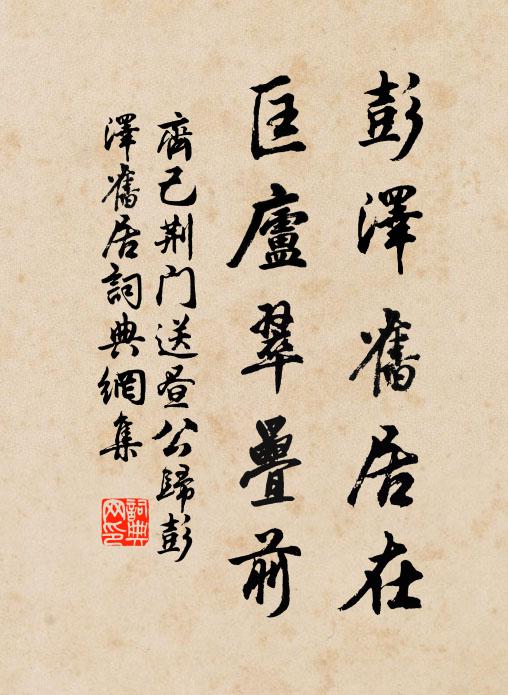 彭澤舊居在
匡廬翠疊前
齊己荆门送昼公歸彭
澤舊居詞典網集
詞典
网印